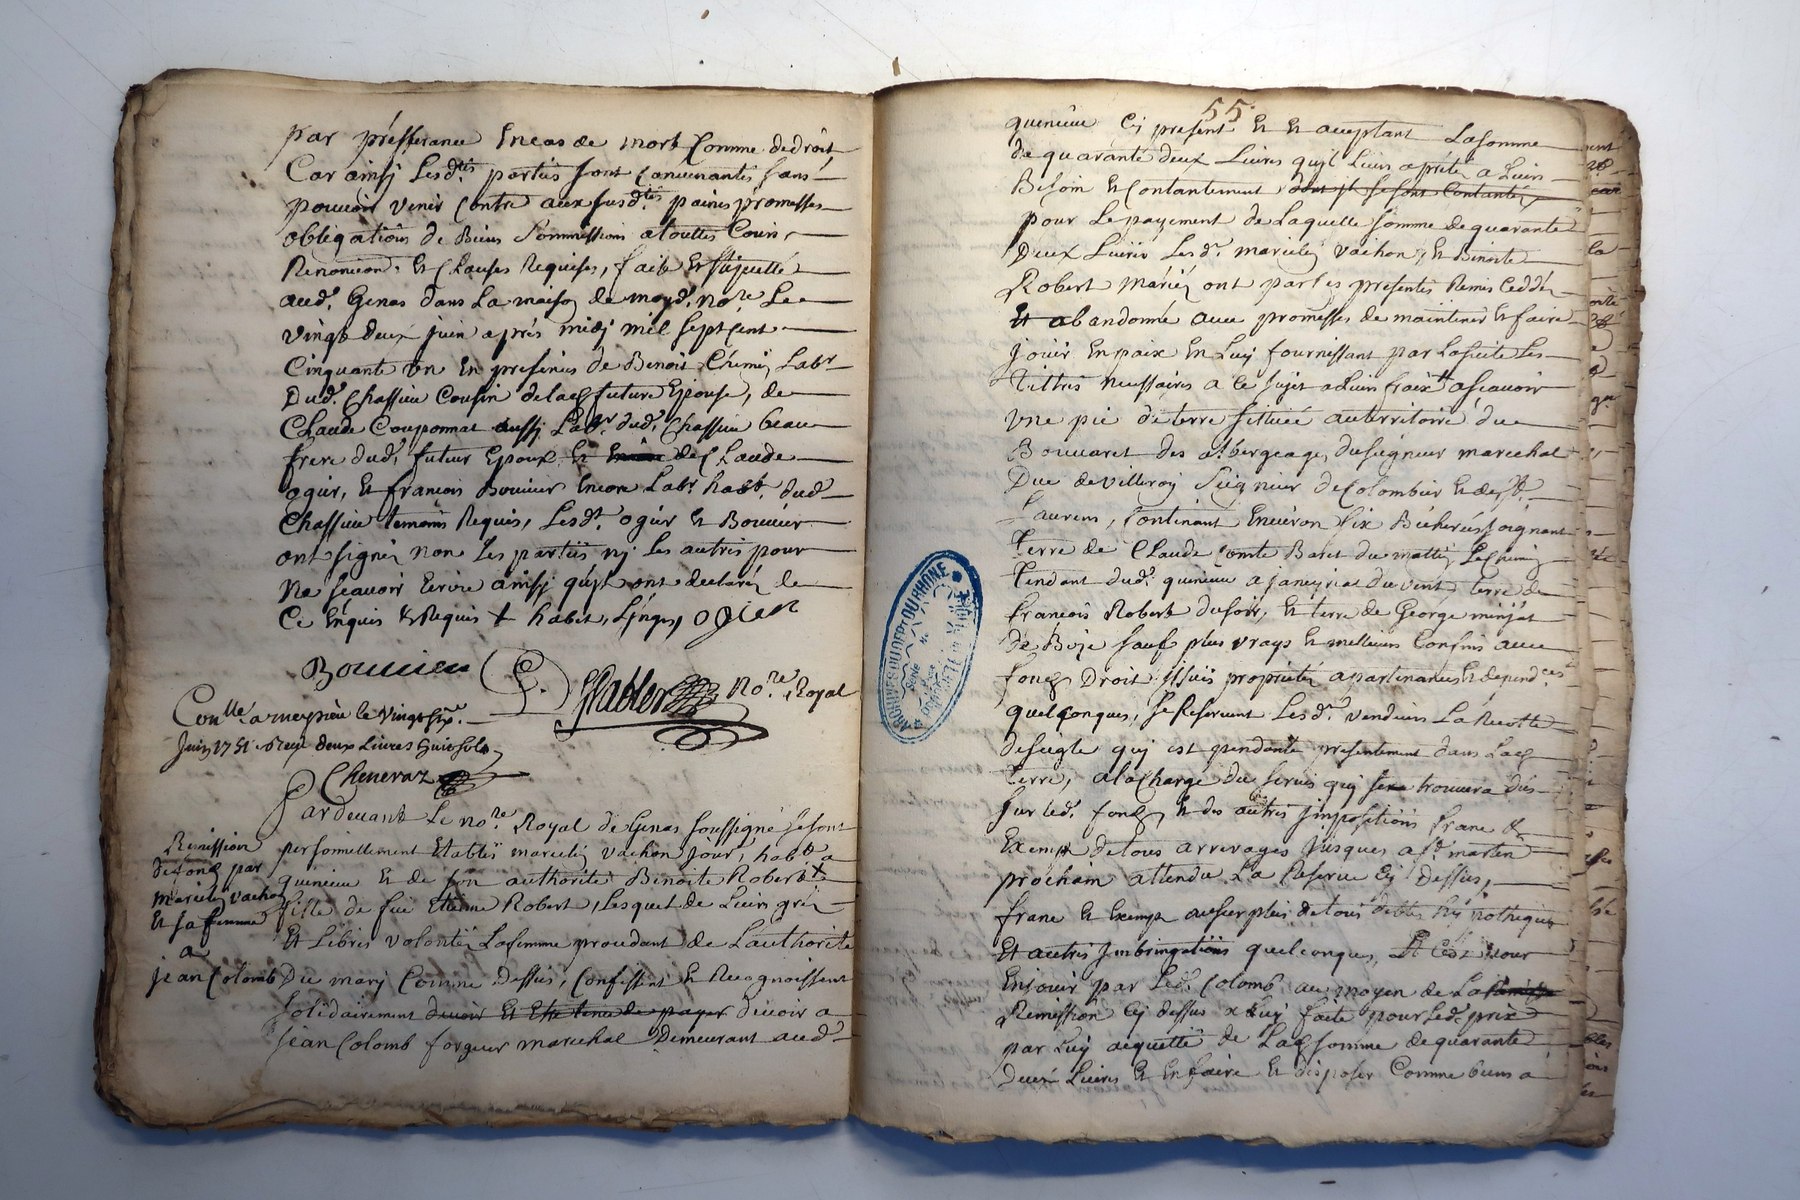 par présferance Encas de mort Comme dedroit
Car ainsy Lesd.tes parties sont Convenantes sans
pouvoir venir Contre aux susd.tes peines promesses
obligations de Biens Sommissions atouttes Cours,
Renonciaon. Et Clauses Requises, fait Et
aud.t Genas dans La maison de moyd.t No.re Le
vingt deux juin aprés midy mil Sept Cent
Cinquante un En presences de Benoit Cremy Lab.r
Dud.t Chassieu Cousin delad future Epouse, de
Claude Couponnat aussy Lab.r dud.t Chassieu beau
frere dud.t futur Epoux, Et de Claude
ogier, Et francois Bouvier Encore Lab.r hab.t dud.
Chassieu temoins Requis, Lesd.t ogier Et Bouvier
ont signés non Les parties ny Les autres pour
Ne scavoir Ecrire ainsy quils ont declarés de
Ce Enquis & Requis
ogier
Bouvier No.re Royal
Con.lle a meyzieu le vingt six
Juin 1751 Recu deux Livres huit sols
Cheneraz
Pardevant Le no.re Royal de Genas soussigné se sont
personnellement Etablis marcelin vachon jour.r hab.t a
quenieu Et de son authorité Benoite Robert
fille de feu Etienne Robert, Lesquels de Leurs grés
Et Libres volontés La femme procedant de Lauthorité
Du mary Comme Dessus, Confessent Et Recognoissent
solidairement devoir Et Etre tenus de payer devoir a
jean Colomb forgeur marechal Demeurant aud.
Remission
de fond par
marcelin vachon
Et sa femme
a
jean Colomb
55
quenieu Cy present Et Et aceptant La somme
de quarante deux Livres quil Leurs a prêtée a Leurs
Besoin Et Contantement dont ils se sont Contantés
pour Le payement de Laquelle somme de quarante
Deux Livres Lesd.t marcelin vachon, Et Benoite
Robert mariés ont par Les presentes Remis Ceddés
Et abandonné avec promesses de maintenir Et faire
jouir En paix En Luy fournissant par La suite Les
Tittres necessaires a Ce sujet a Leurs fraix ascavoir
une pie de terre scituée au territoire du
Bouvaret des albergeages du seigneur marechal
Duc de villeroy Seigneur de Colombier Et de St
Laurens, Contenant Environ six Bicherées joignant
Terre de Claude Comte Baret du matin Le Chemin
Tendant dud.t quenieu a janeyriat du vent, terre de
francois Robert du soir, Et terre de George minjat
de Bize sauf plus vrays Et meilleurs Confins avec
fonds Droit issues proprietés apartenances Et depend.ces
quelConques, se Reservent Lesd.t vendeurs La Recolte
de segle quy est pendante presentement dans Lad
terre, a la Charge du servis quy se trouvera dus
sur led.t fond, Et des autres jmpositions franc &
Exempt de tous arrerages jusques a St martin
prochain attendu La Reserve Cy Dessus,
franc Et Exempt au surplus de tous debtes hypotheques
Et autres jmbringations quelconques, Et Cest pour
En jouir par Led.t Colomb au moyen de La
Remission Cy dessus a Luy faite pour Led.t prix
par Luy acquitté de Lad somme de quarante
deux Livres Et En faire Et disposer Comme biens a
ARCHIVES DU DEPT DU RHONE